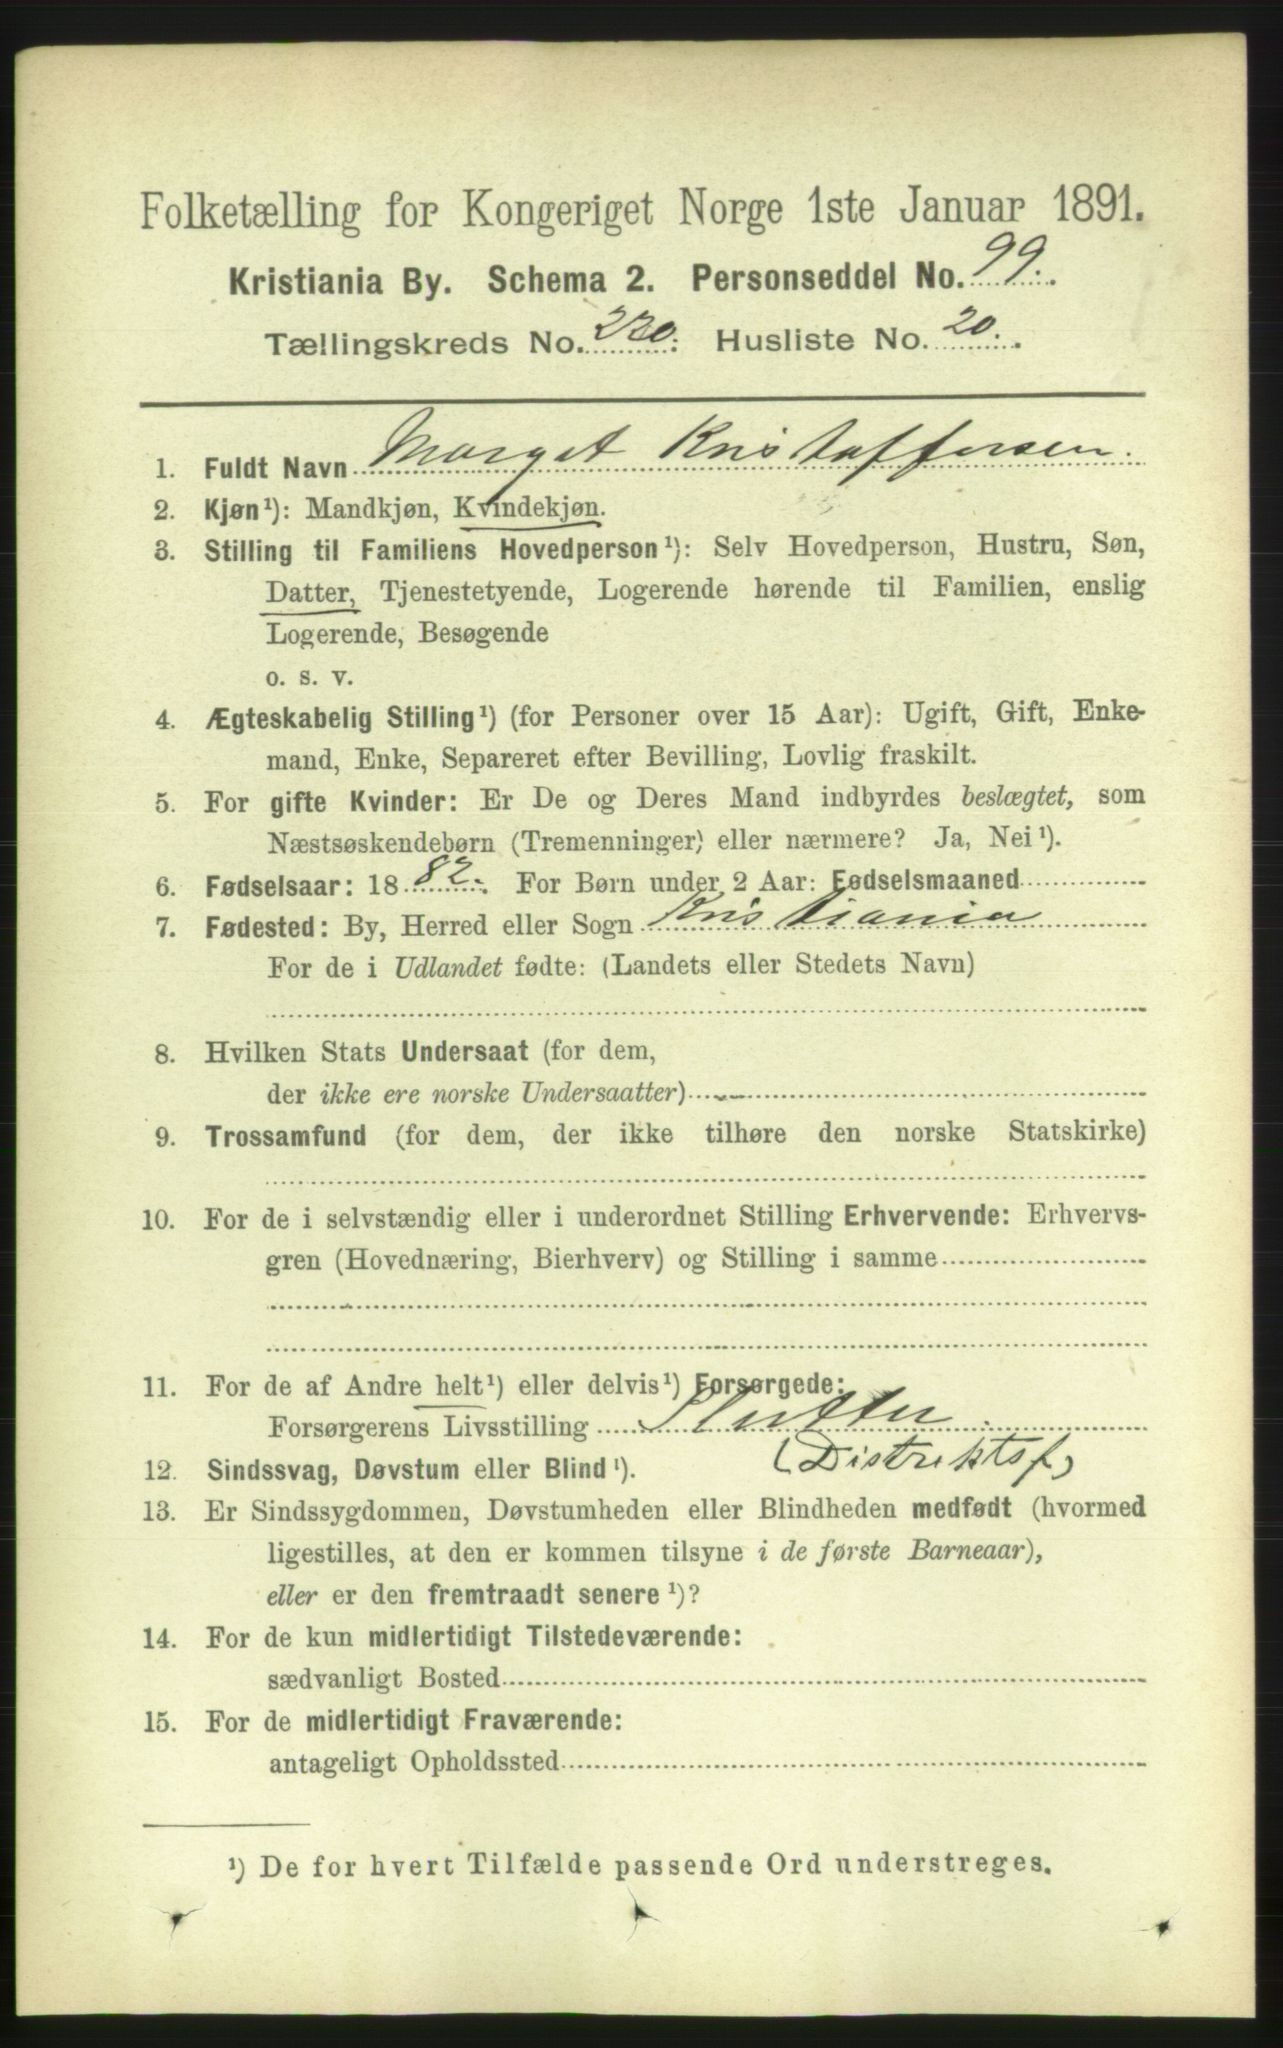 Folketælling for Kongeriget Norge 1ste Januar 1891.
Kristiania By. Schema 2. Personseddel No. 99.
Tællingskreds No. 220. Husliste No. 20.
1. Fuldt Navn Margot Kristoffersen.
2. Kjøn¹): Mandkjøn, Kvindekjøn.
3. Stilling til Familiens Hovedperson¹): Selv Hovedperson, Hustru, Søn,
Datter, Tjenestetyende, Logerende hørende til Familien, enslig
Logerende, Besøgende
o. s. v.
4. Ægteskabelig Stilling¹) (for Personer over 15 Aar): Ugift, Gift, Enke-
mand, Enke, Separeret efter Bevilling, Lovlig fraskilt.
5. For gifte Kvinder: Er De og Deres Mand indbyrdes beslægtet, som
Næstsøskendebørn (Tremenninger) eller nærmere? Ja, Nei¹).
6. Fødselsaar: 1882. For Børn under 2 Aar: Fødselsmaaned
7. Fødested: By, Herred eller Sogn Kristiania
For de i Udlandet fødte: (Landets eller Stedets Navn)
8. Hvilken Stats Undersaat (for dem,
der ikke ere norske Undersaatter)
9. Trossamfund (for dem, der ikke tilhøre den norske Statskirke)
10. For de i selvstændig eller i underordnet Stilling Erhvervende: Erhvervs-
gren (Hovednæring, Bierhverv) og Stilling i samme
11. For de af Andre helt¹) eller delvis¹) Forsørgede:
Forsørgerens Livsstilling
(Distriktsf)
12. Sindssvag, Døvstum eller Blind¹).
13. Er Sindssygdommen, Døvstumheden eller Blindheden medfødt (hvormed
ligestilles, at den er kommen tilsyne i de første Barneaar),
eller er den fremtraadt senere¹)?
14. For de kun midlertidigt Tilstedeværende:
sædvanligt Bosted
15. For de midlertidigt Fraværende:
antageligt Opholdssted
¹) De for hvert Tilfælde passende Ord understreges.